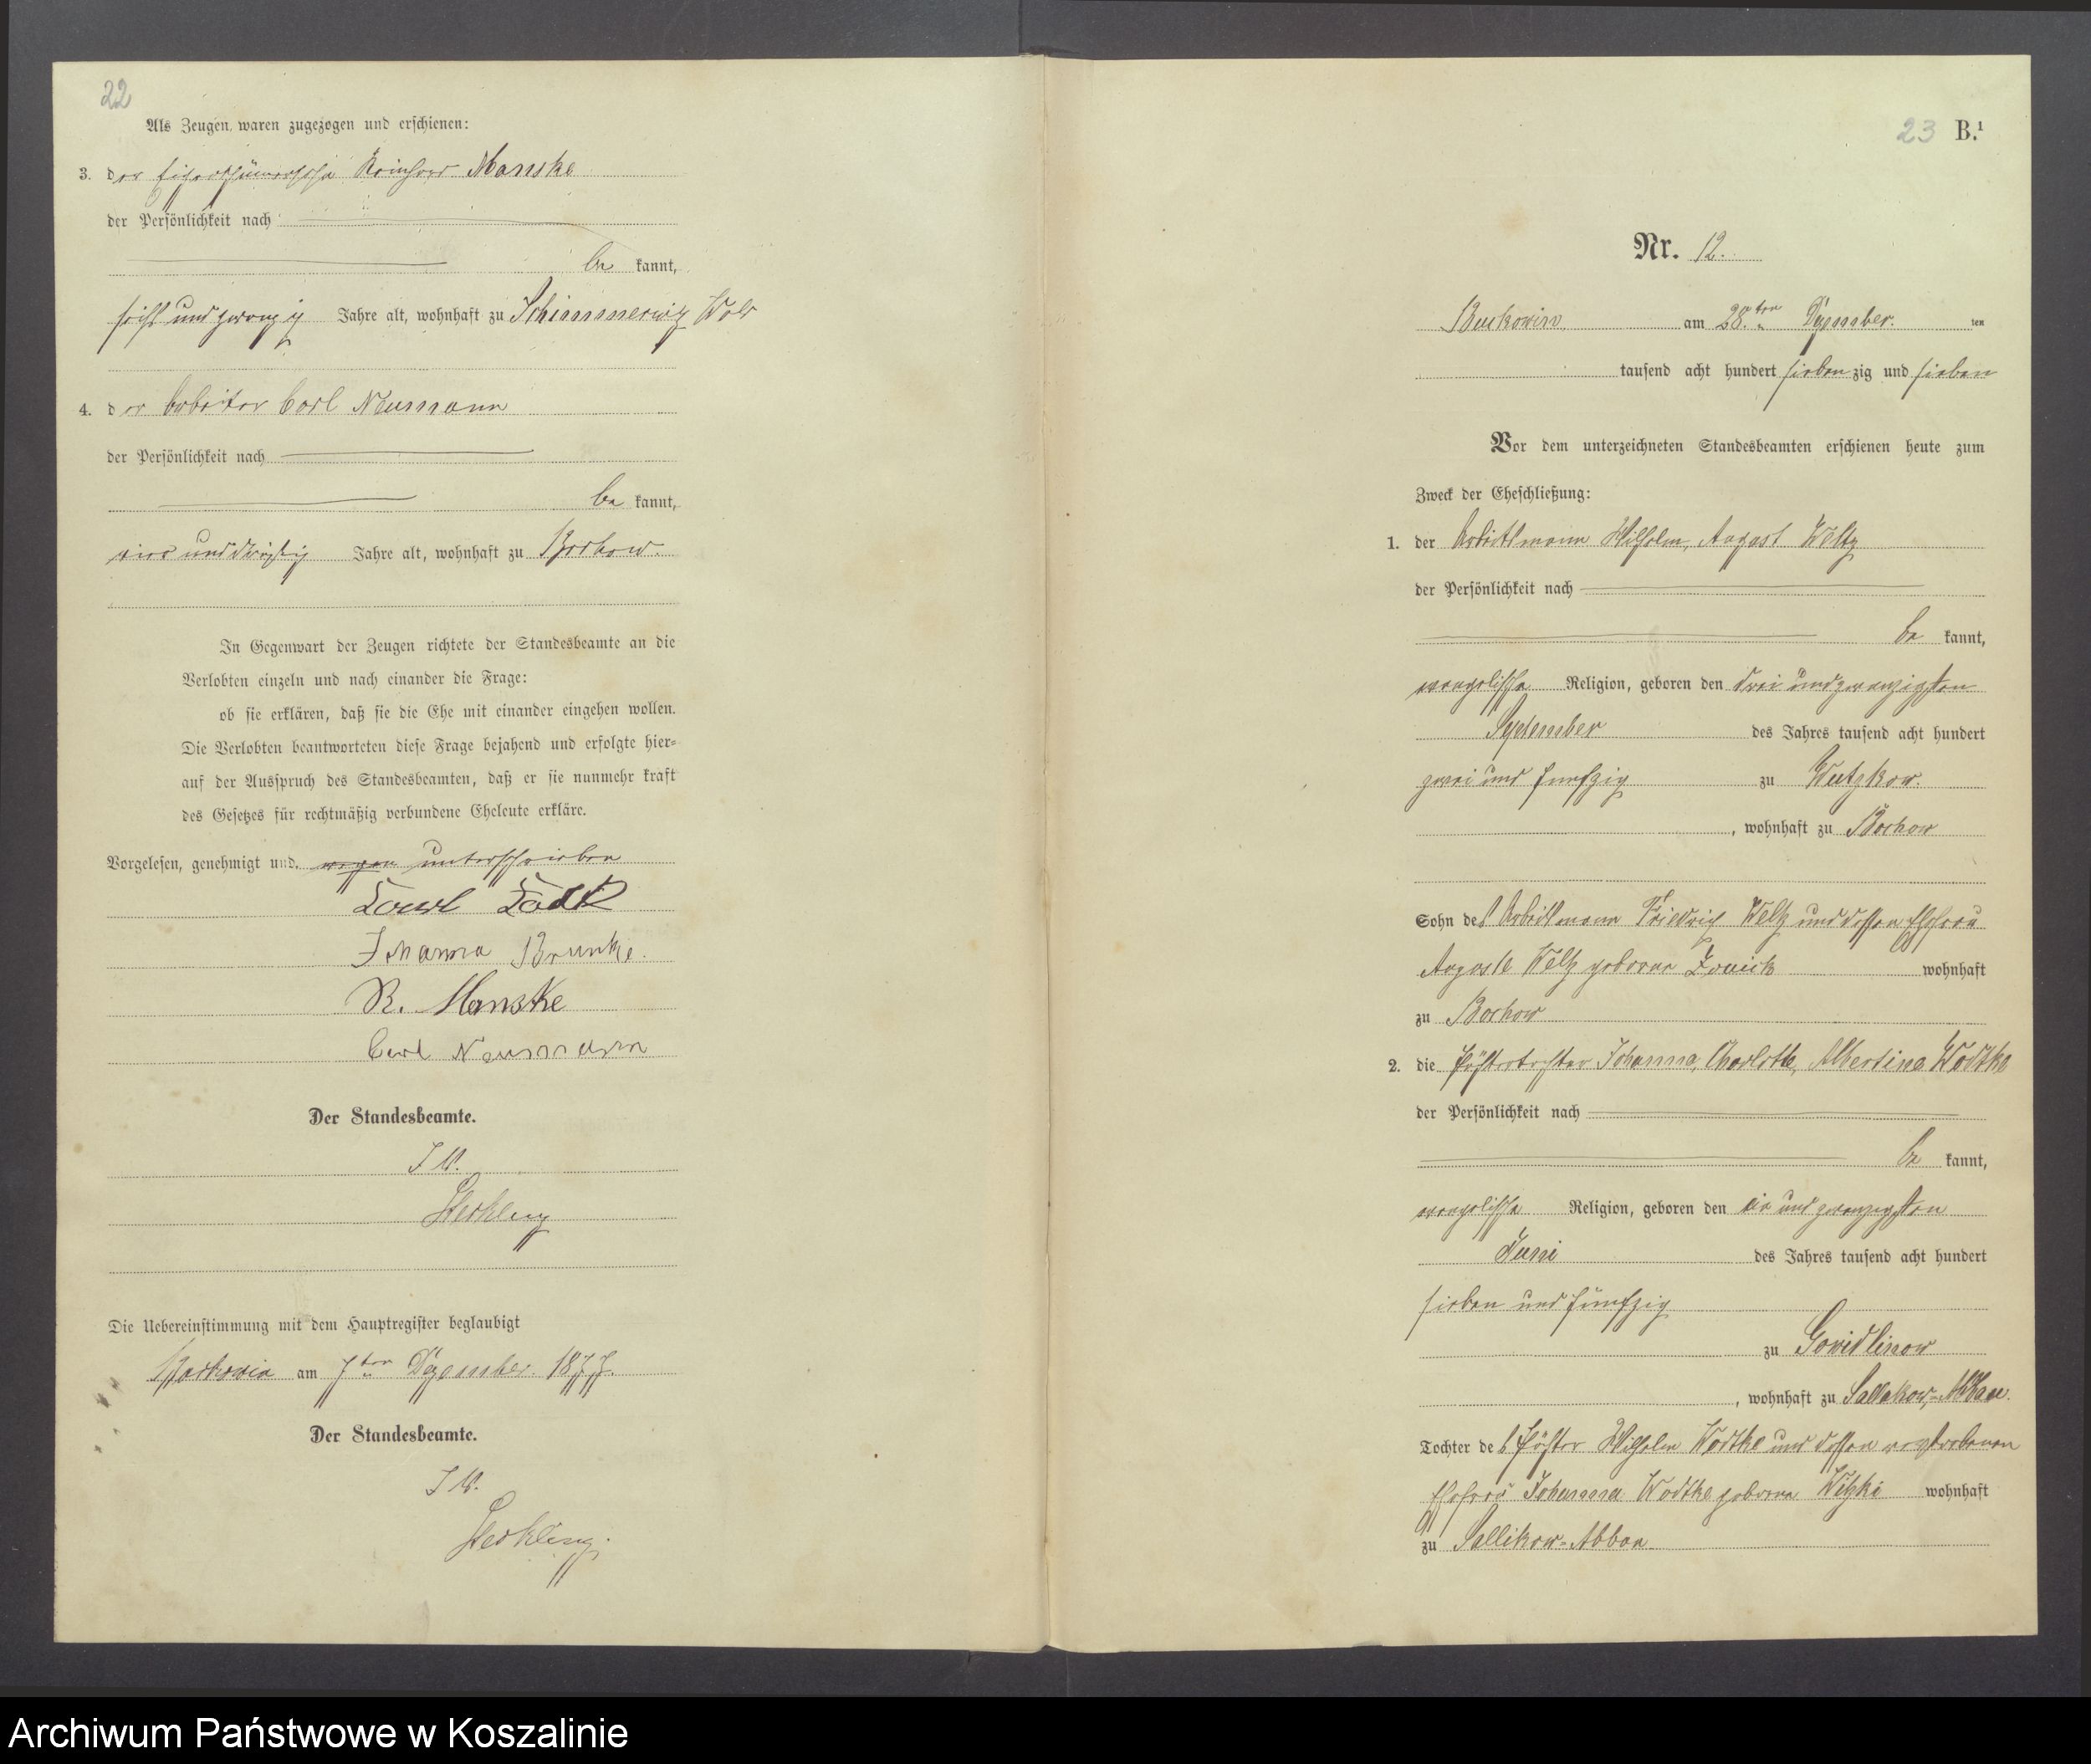 22
Als Zeugen waren zugezogen und erschienen:
3. der Eigenthümersohn Reinhard Manske
der Persönlichkeit nach
be kannt,
sechs und zwanzig Jahre alt, wohnhaft zu Schimmerwitz Wold
4. der Arbeiter Carl Neumann
der Persönlichkeit nach
be kannt,
vier und dreißig Jahre alt, wohnhaft zu Bochow.
In Gegenwart der Zeugen richtete der Standesbeamte an die
Verlobten einzeln und nach einander die Frage:
ob sie erklären, daß sie die Ehe mit einander eingehen wollen.
Die Verlobten beantworteten diese Frage bejahend und erfolgte hier-
auf der Ausspruch des Standesbeamten, daß er sie nunmehr kraft
des Gesetzes für rechtmäßig verbundene Eheleute erkläre.
Vorgelesen, genehmigt und wegen unterschrieben
Johanna Brunke.
R. Manske
Carl Neumann
Der Standesbeamte.
I. V.
Die Uebereinstimmung mit dem Hauptregister beglaubigt
Buckowin am 7ten Dezember 1877.
Der Standesbeamte.
I. V.
23 B.¹
Nr. 12.
Buckowin am 28.ten Dezember ten
tausend acht hundert sieben zig und sieben
Vor dem unterzeichneten Standesbeamten erschienen heute zum
Zweck der Eheschließung:
1. der Arbeitsmann Wilhelm, August Weltz
der Persönlichkeit nach
be kannt,
evangelische Religion, geboren den drei und zwanzigsten
September des Jahres tausend acht hundert
zwei und fünfzig zu Wutzkow.
, wohnhaft zu Bochow
Sohn des Arbeitsmann Friedrich Weltz und dessen Ehefrau
Auguste Weltz geborene wohnhaft
zu Bochow
2. die Försterstochter Johanna, Charlotte, Albertine Wodtke
der Persönlichkeit nach
be kannt,
evangelische Religion, geboren den ein und zwanzigsten
Juni des Jahres tausend acht hundert
sieben und fünfzig
zu Gowidlinow
, wohnhaft zu Sallakow-Abbau.
Tochter des Förster Wilhelm Wodtke und dessen verstorbenen
Ehefrau Johanna Wodtke geborene Witzke wohnhaft
zu Sallikow-Abbau
Archiwum Państwowe w Koszalinie